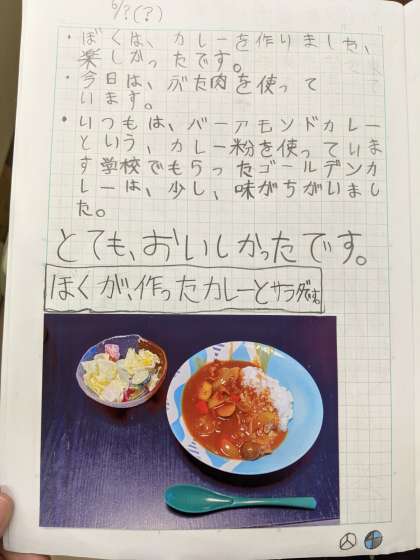 6/?(?)
・ぼくは、カレーを作りました、
楽しかったです。
・今日は、ぶた肉を使って
います。
・いつもは、バーアモンドカレー
という、カレー粉を使っていま
す学校でもらったゴールデンカ
レーは、少し、味がちがいまし
た。
とても、おいしかったです。
ぼくが、作ったカレーとサラダです。